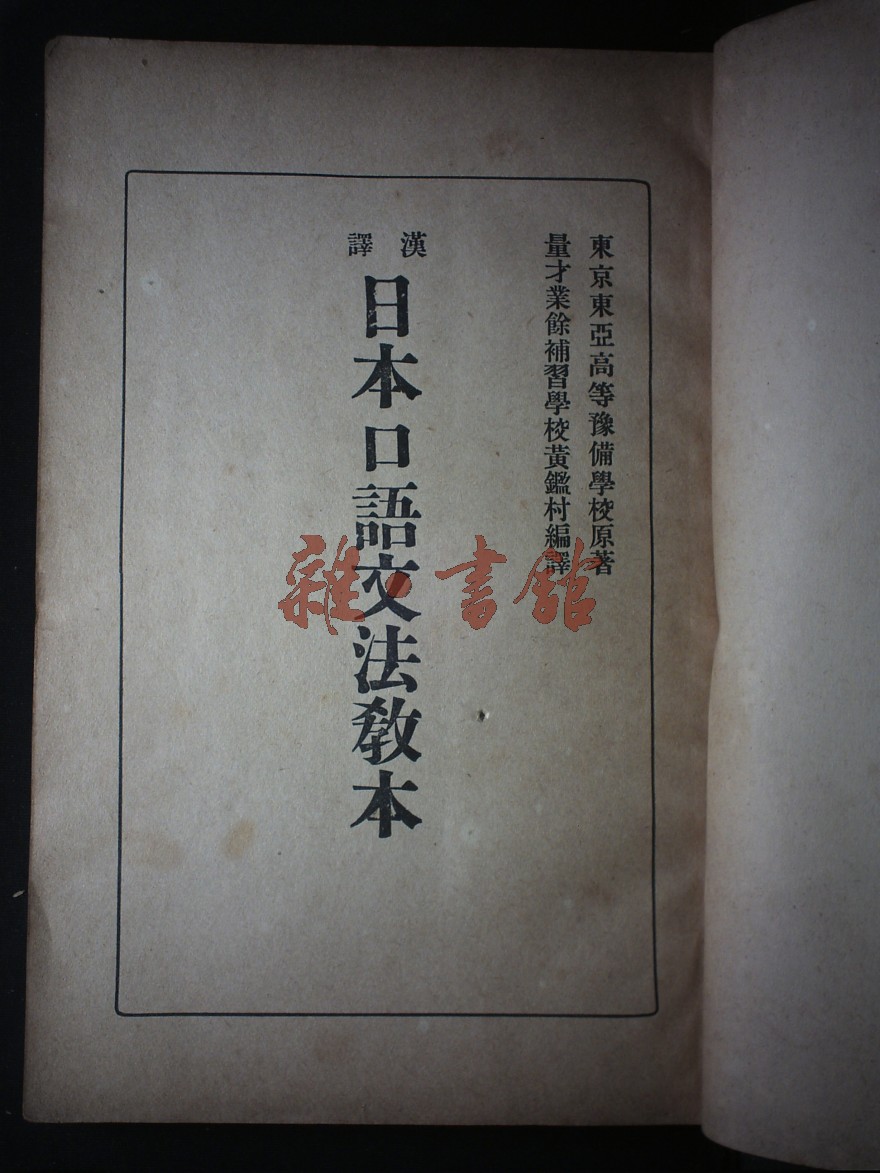 東京東亞高等豫備學校原著
量才業餘補習學校黃鑑村編譯
漢譯
日本口語文法敎本
雜·書館